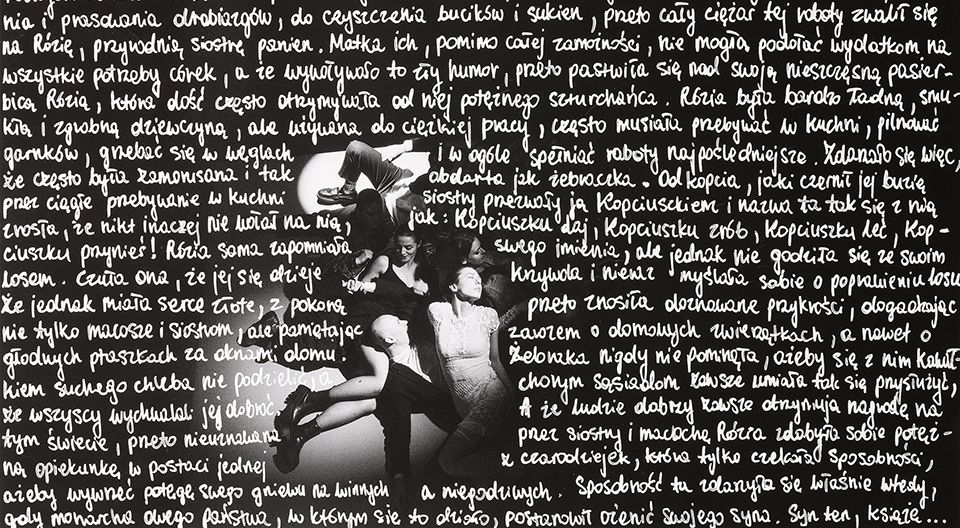 nia i prasowania drobiazgów, do czyszczenia bucików i sukien, przeto cały ciężar tej roboty zwalił się
na Rózię, przyrodnią siostrę panien. Matka ich, pomimo całej zamożności, nie mogła podołać wydatkom na
wszystkie potrzeby córek, a że wywoływało to zły humor, przeto pastwiła się nad swoją nieszczęsną pasier-
bicą Rózią, która dość często otrzymywała od niej potężnego szturchańca. Rózia była bardzo ładną, smu-
kłą i zgrabną dziewczyną, ale używana do ciężkiej pracy, często musiała przebywać w kuchni, pilnować
garnków, grzebać się w węglach i w ogóle spełniać roboty najpośledniejsze. Zdarzało się więc,
że często była zamorusana i tak obdarta jak żebraczka. Od kopcia, jaki czernił jej buzię
przez ciągłe przebywanie w kuchni siostry przezwały ją Kopciuszkiem i nazwa ta tak się z nią
zrosła, że nikt inaczej nie wołał na nią, jak: Kopciuszku daj, Kopciuszku zrób, Kopciuszku leć, Kop-
ciuszku przynieś! Rózia sama zapomniała swego imienia, ale jednak nie godziła się ze swoim
losem. Czuła ona, że jej się dzieje krzywda i nieraz myślała sobie o poprawieniu losu
Że jednak miała serce złote, z pokorą przeto znosiła doznawane przykrości, dogadzając
nie tylko macosze i siostrom, ale pamiętając zarazem o domowych zwierzątkach, a nawet o
głodnych ptaszkach za oknami domu. Żebraka nigdy nie pominęła, ażeby się z nim kawał-
kiem suchego chleba nie podzielić, a chorym sąsiadom zawsze umiała tak się przysłużyć,
że wszyscy wychwalali jej dobroć. A że ludzie dobrzy zawsze otrzymują nagrodę na
tym świecie, przeto nieuznawana przez siostry i macochę Rózia zdobyła sobie potęż-
ną opiekunkę w postaci jednej z czarodziejek, która tylko czekała sposobności,
ażeby wywrzeć potęgę swego gniewu na winnych a niegodziwych. Sposobność ta zdarzyła się właśnie wtedy,
gdy monarcha owego państwa, w którym się to działo, postanowił ożenić swojego syna. Syn ten, książę...